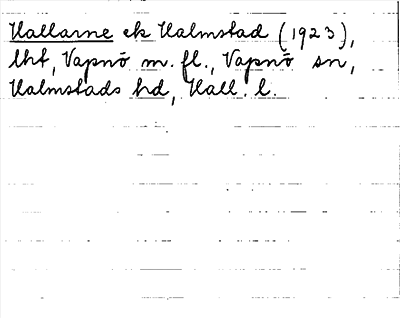 Hallarne ek Halmstad (1923),
lht, Vapnö m. fl., Vapnö sn,
Halmstads hd, Hall. l.